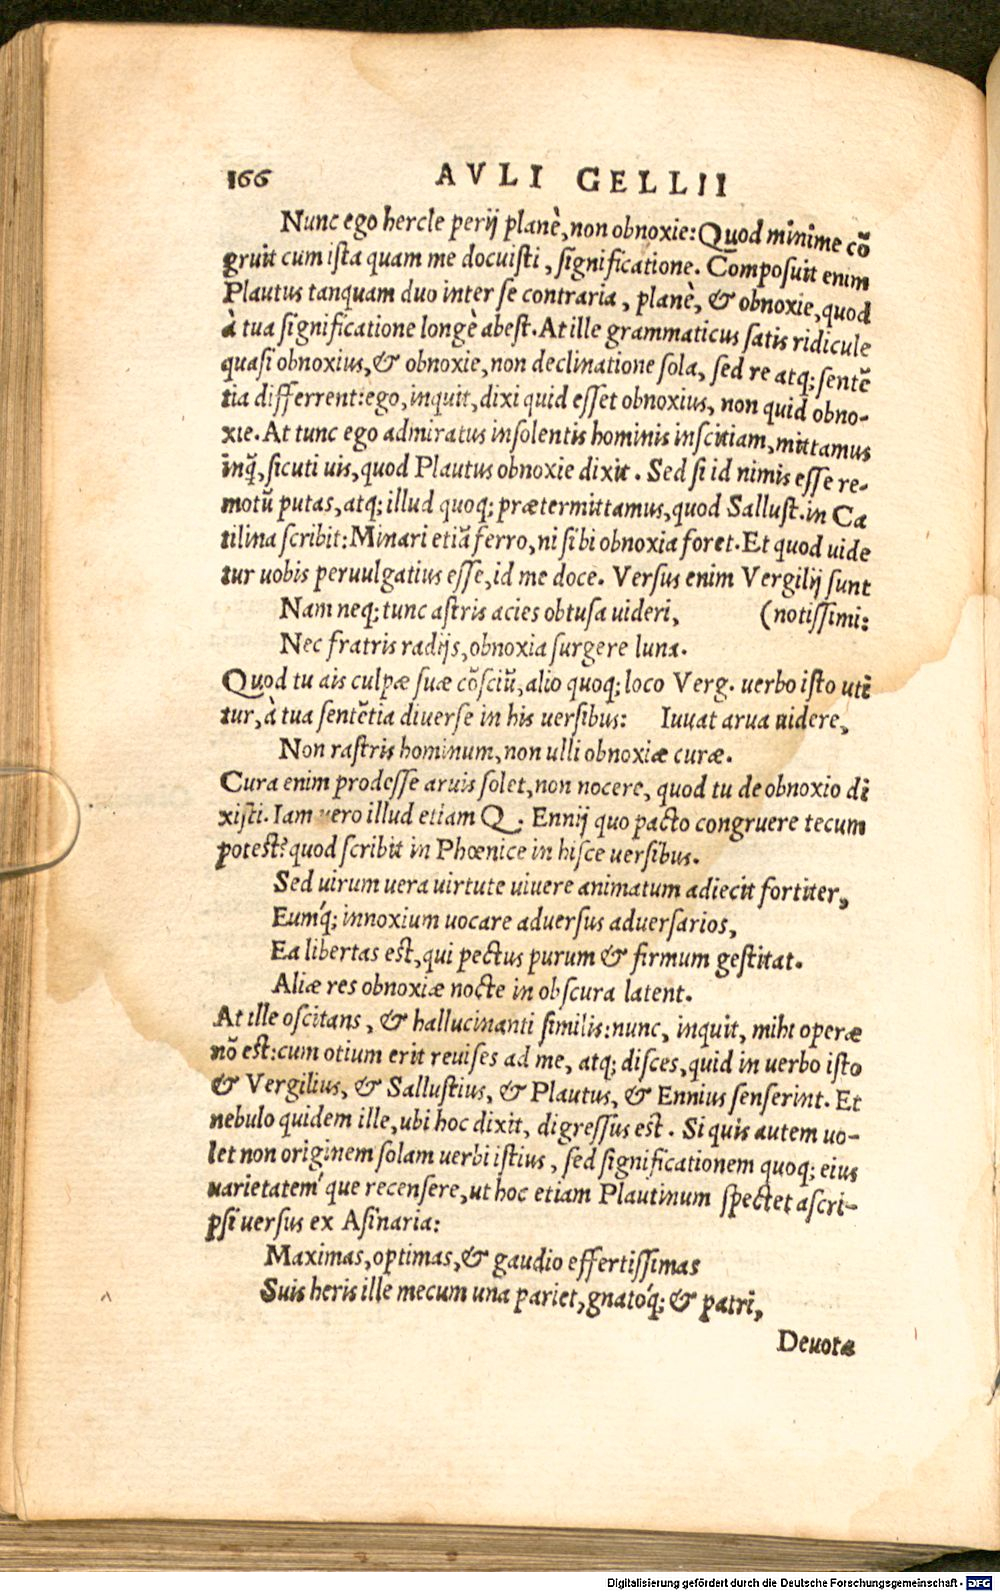 166 AVLI GELLII
Nunc ego hercle perij planè, non obnoxie: Quod minime cō
gruit cum ista quam me docuisti, significatione. Composuit enim
Plautus tanquam duo inter se contraria, planè, & obnoxie, quod
à tua significatione longè abest. At ille grammaticus satis ridicule
quasi obnoxius, & obnoxie, non declinatione sola, sed re atq; sentē
tia differrent: ego, inquit, dixi quid esset obnoxius, non quid obno-
xie. At tunc ego admiratus insolentis hominis inscitiam, mittamus
inq̃, sicuti uis, quod Plautus obnoxie dixit. Sed si id nimis esse re-
motū putas, atq; illud quoq; prætermittamus, quod Sallust. in Ca
tilina scribit: Minari etiā ferro, ni sibi obnoxia foret. Et quod uide
tur uobis peruulgatius esse, id me doce. Versus enim Vergilij sunt
Nam neq; tunc astris acies obtusa uideri, (notissimi:
Nec fratris radijs, obnoxia surgere luna.
Quod tu ais culpæ suæ cōsciū, alio quoq; loco Verg. uerbo isto uti
tur, à tua sentētia diuerse in his uersibus: Iuuat arua uidere,
Non rastris hominum, non ulli obnoxiæ curæ.
Cura enim prodesse aruis solet, non nocere, quod tu de obnoxio di
xisti. Iam uero illud etiam Q. Ennij quo pacto congruere tecum
potest? quod scribit in Phœnice in hisce uersibus.
Sed uirum uera uirtute uiuere animatum adiecit fortiter,
Eumq́; innoxium uocare aduersus aduersarios,
Ea libertas est, qui pectus purum & firmum gestitat.
Aliæ res obnoxiæ nocte in obscura latent.
At ille oscitans, & hallucinanti similis: nunc, inquit, mihi operæ
nō est: cum otium erit reuises ad me, atq; disces, quid in uerbo isto
& Vergilius, & Sallustius, & Plautus, & Ennius senserint. Et
nebulo quidem ille, ubi hoc dixit, digressus est. Si quis autem uo-
let non originem solam uerbi istius, sed significationem quoq; eius
uarietateḿ que recensere, ut hoc etiam Plautinum spectet ascri-
psi uersus ex Asinaria:
Maximas, optimas, & gaudio effertissimas
Suis heris ille mecum una pariet, gnatoq́; & patri,
Deuotæ
Digitalisierung gefördert durch die Deutsche Forschungsgemeinschaft - DFG